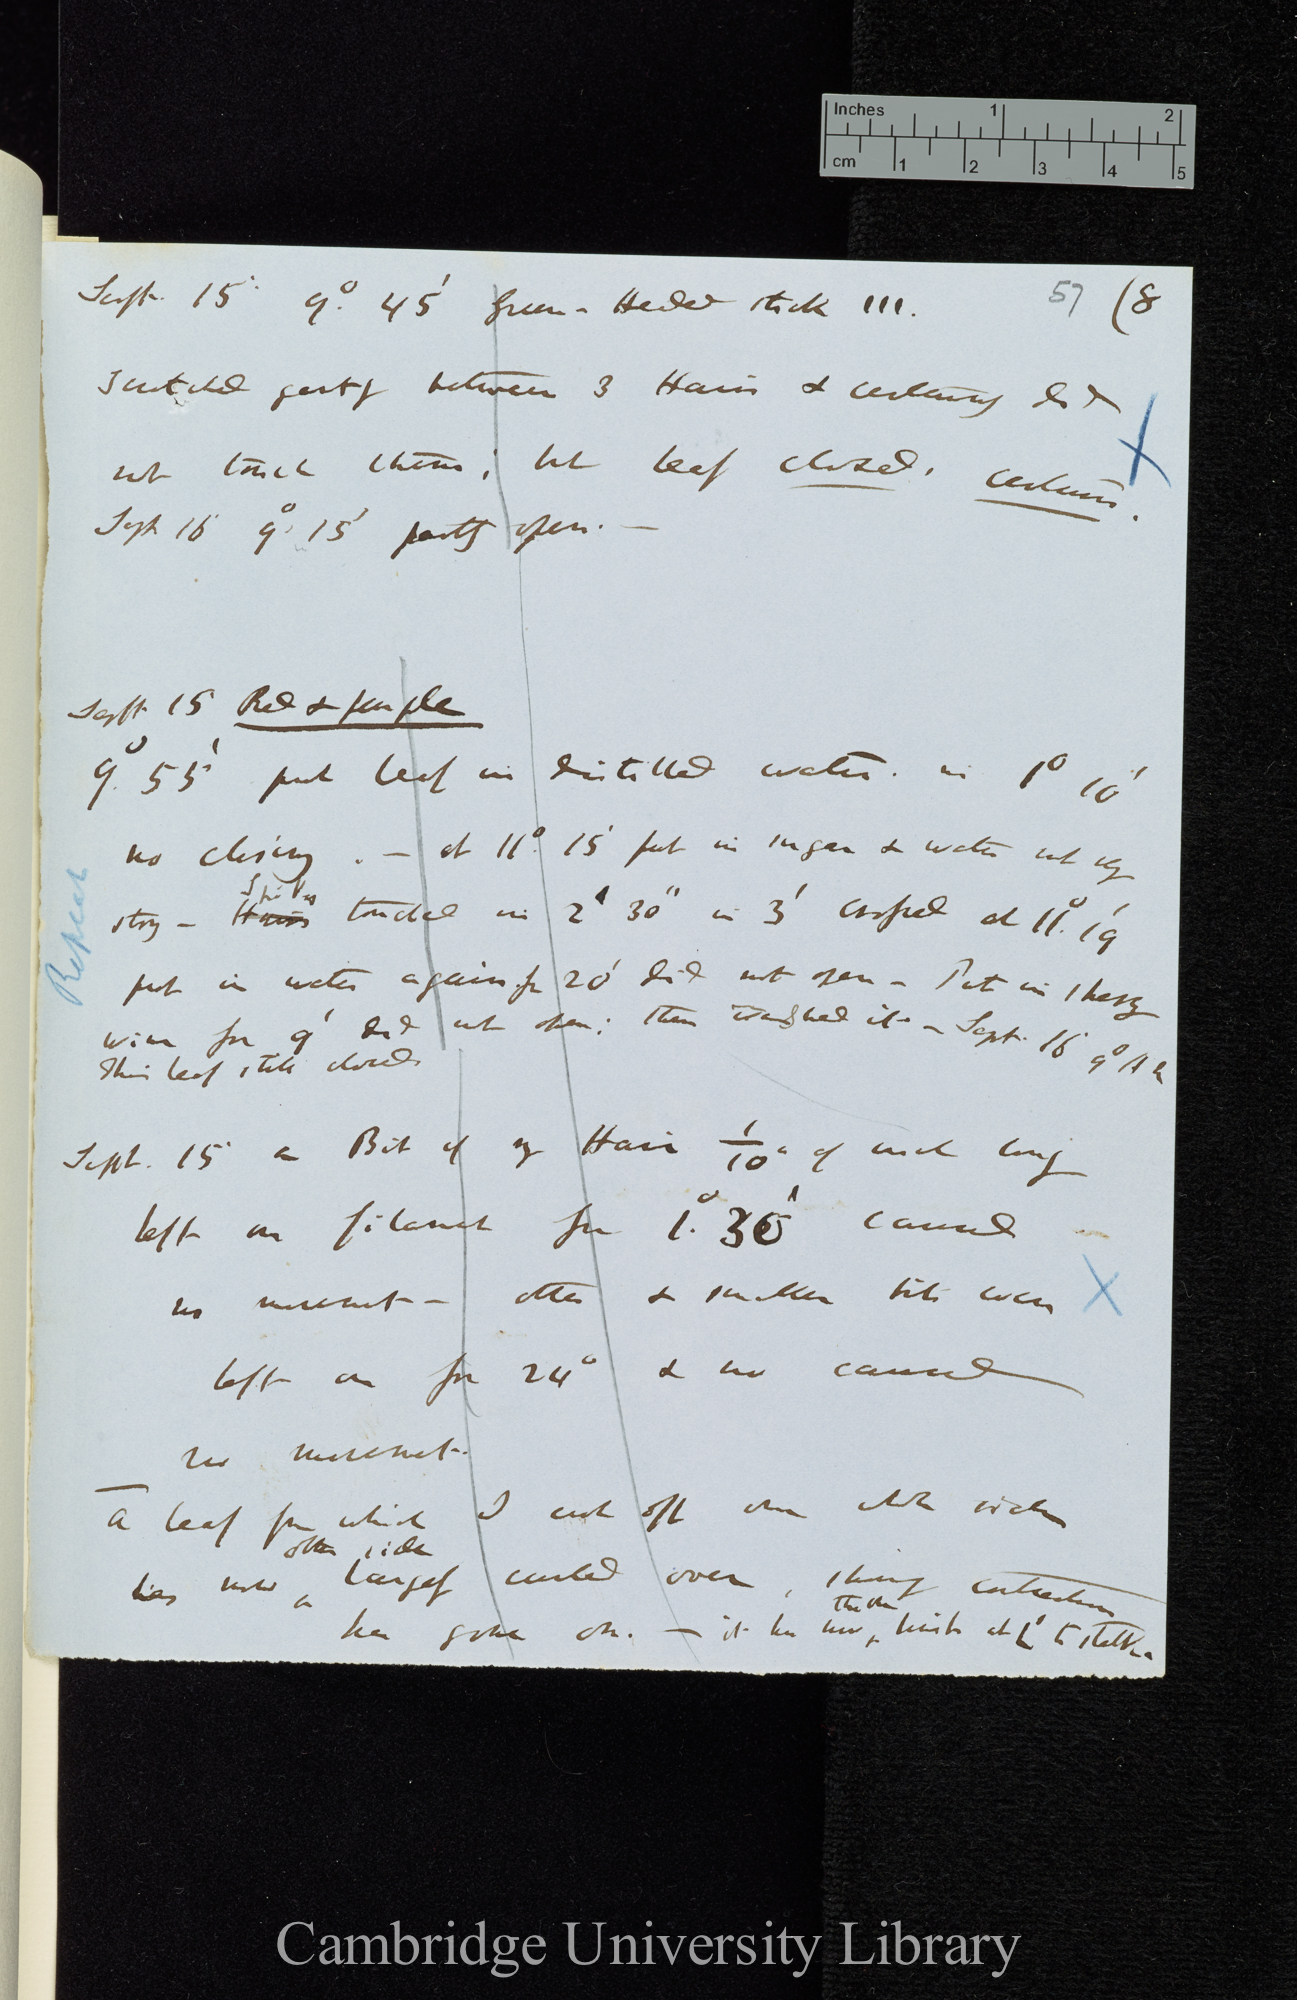 Inches 1 2
cm 1 2 3 4 5
57 (8
Sept. 15 9° 45' Green-Headed stick III.
Scratched gently between 3 Hairs & certainly did
not touch them; but leaf closed. certain.
Sept 16 9° 15' partly open. —
Sept 15 Red & purple
9° 55' put leaf in distilled water. in 1° 10'
no closing. — at 11° 15' put in sugar & water not very
strong — Hairs Spikes touched in 2' 30" in 3' crossed at 11° 19'
put in water again for 20' did not open — Put in sherry
wine for 9' did not open; then washed it — Sept. 16 9° A M
This leaf still closed
Repeat
Sept. 15 a Bit of my Hair 1/10 of inch long
left on filament for 1° 30' caused
no movement — other & smaller bits were
left on for 24° & no caused
no movement.
A leaf from which I cut off one whole side
has now other side largely curled over, showing contraction
has gone on. — it has now